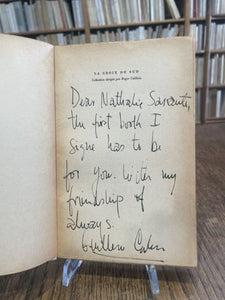 LA CROIX DU SUD
Collection dirigée par Roger Caillois
Dear Nathalie Sarraute,
the first book I
signe has to be
for you. With my
friendship of
always.
Guillermo Cabrera